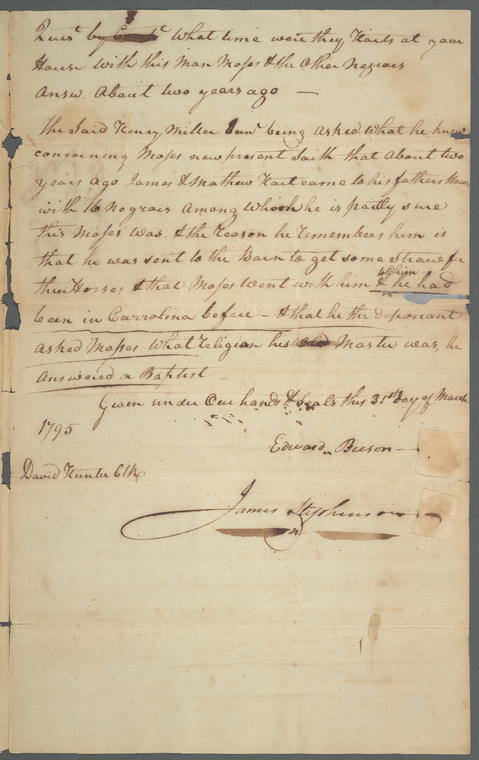 Quesn by Court What time were they Harts at your
House with this man Moses & the Other Negroes
Answ. About two years ago —
The Said Henry Miller Junr being Asked What he knew
concerning Moses now present Saith that About two
years ago James & Mathew Hart came to his fathers House
with 16 Negroes Among Which he is partly sure
this Moses was. & the Reason he Remembers him is
that he was sent to the Barn to get some straw for
their Horses & that Moses went with him & told him he had
been in Carrolina before — & that he the deponant
asked Mosses What religion his old Master was, he
Answered a Baptist —
Given under Our hands & Seals this 31st day of March
1795
Edward Beeson —
David Hunter Clk
James Stephenson